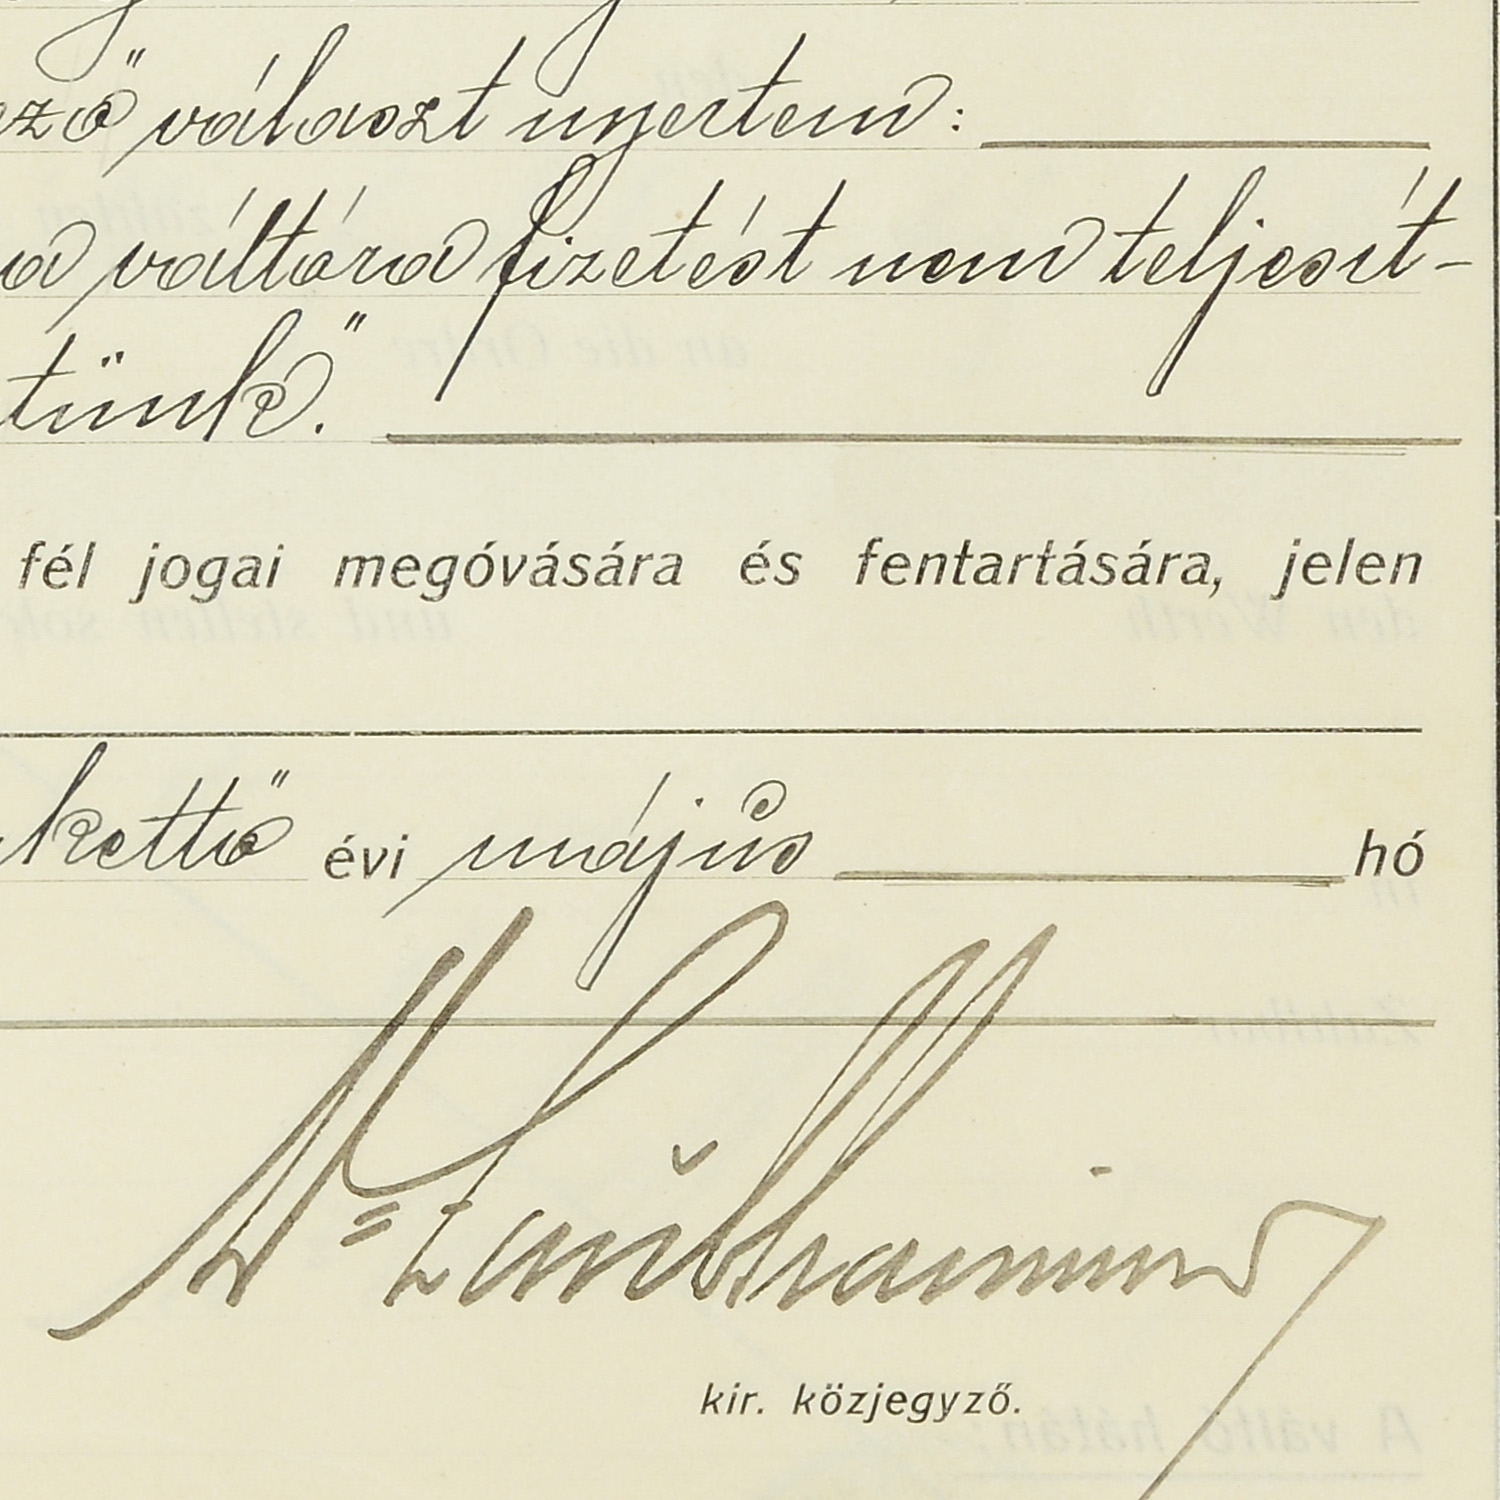 ező választ nyertem:
a váltóra fizetést nem teljesít-
tünk."
fél jogai megóvására és fentartására, jelen
kettő évi május hó
kir. közjegyző.